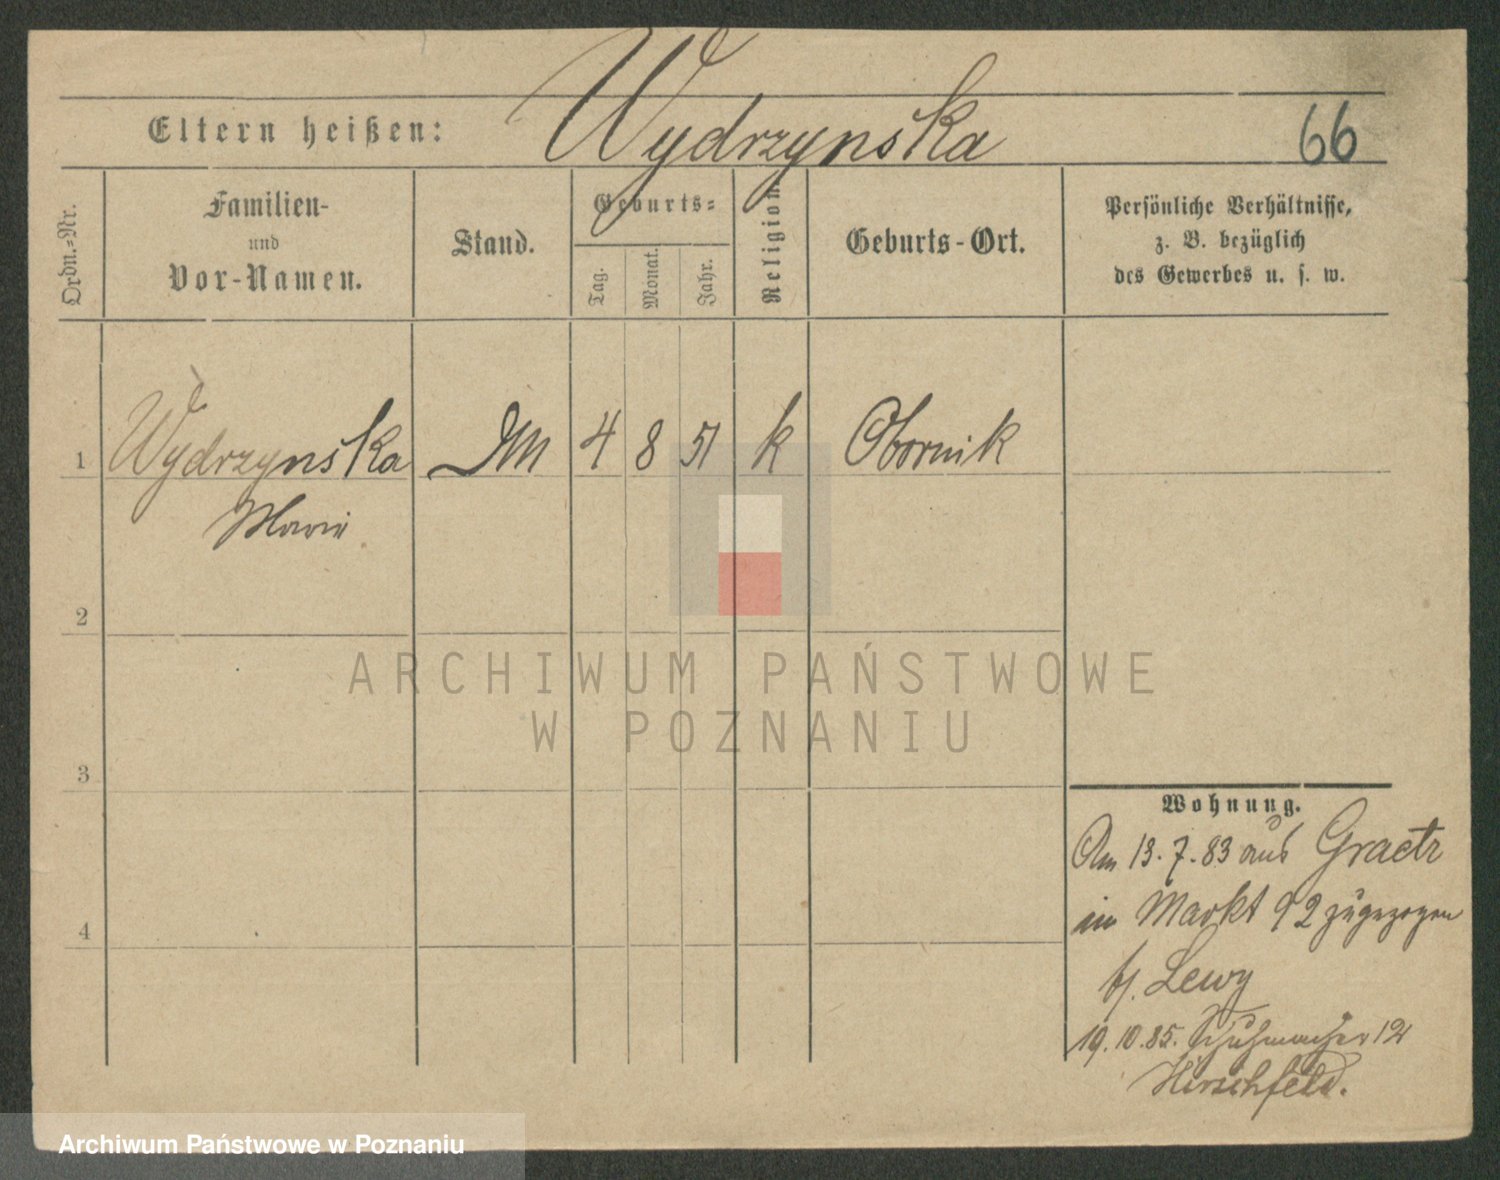 Wydrzynska
Eltern heißen:
66
Ordn.-Nr.
Familien-
und
Vor-Namen.
Stand.
Geburts-
Tag.
Monat.
Jahr.
Religion
Geburts-Ort.
Persönliche Verhältnisse,
z. B. bezüglich
des Gewerbes u. s. w.
1 Wydrzynska 4 8 51 k Obornik
Marie
2
3
4
Wohnung.
Am 13.7.83 aus Graetz
Markt 92 zugezogen
b/. Lewy
19.10.85. Schuhmacher 12
Hirschfeld.
ARCHIWUM PAŃSTWOWE
W POZNANIU
Archiwum Państwowe w Poznaniu